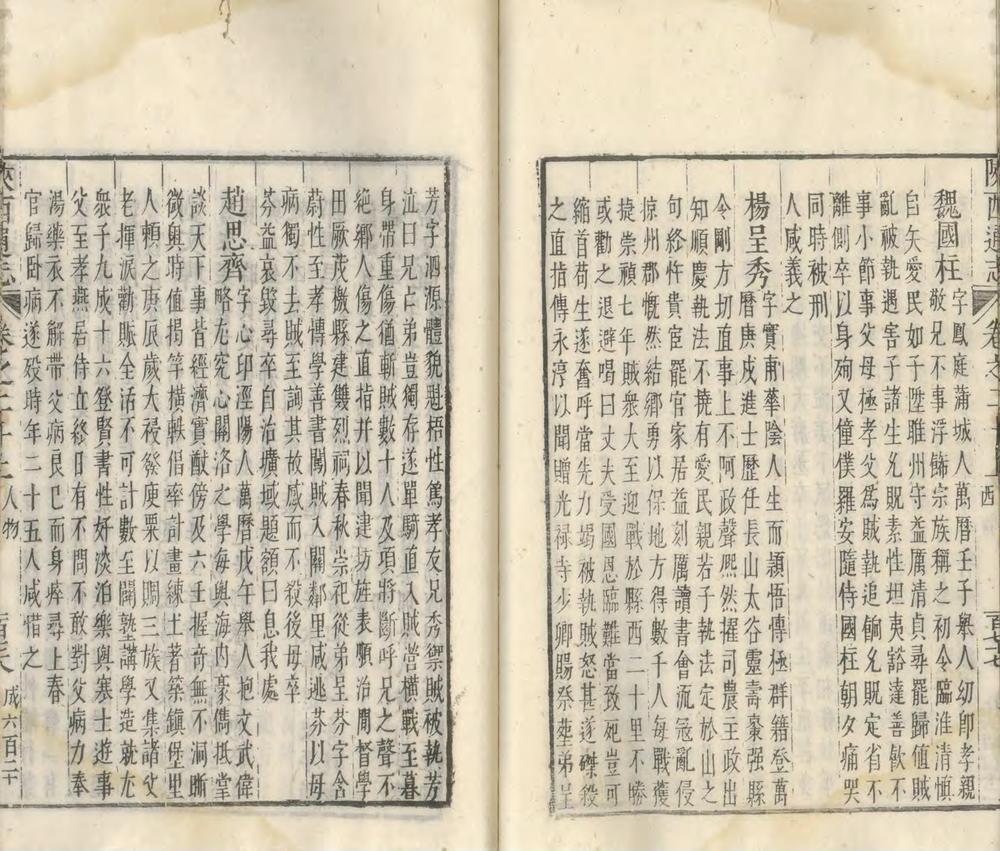 陝西通志
卷之二十上
西
百七
魏國柱字鳳庭蒲城人萬曆壬子舉人幼卽孝親
敬兄不事浮飾宗族稱之初令臨淮清慎
自矢愛民如子陞睢州守益厲清貞尋罷歸値賊
亂被執遇害子諸生允貺素性坦夷豁達善飮不
事小節事父母極孝父爲賊執追餉允貺定省不
離側卒以身殉又僮僕羅安隨侍國柱朝夕痛哭
同時被刑
人咸義之
楊呈秀字實甫華陰人生而頴悟傳極群籍登萬
曆庚戍進士歷任長山太谷靈壽棗强縣
令剛方切直事上不阿政聲熈然擢司農主政出
知順慶執法不撓有愛民親若子執法定於山之
句終忤貴宦罷官家居益刻厲讀書會流冦亂侵
掠州郡慨然結鄉勇以保地方得數千人每戰獲
捷崇禎七年賊衆大至迎戰於縣西二十里不勝
或勸之退避喝曰丈夫受國恩臨難當致死豈可
縮首苟生遂奮呼當先力竭被執賊怒甚遂磔殺
之直指傳永淳以聞贈光禄寺少卿賜祭塟弟呈
芳字泗源體貌魁梧性篤孝友兄秀禦賊被執芳
泣曰兄亡弟豈獨存遂單騎直入賊營橫戰至暮
身帶重傷猶斬賊數十人及項將斷呼兄之聲不
絶鄉人傷之直指并以聞建坊旌表順治間督學
田厥茂檄縣建雙烈祠春秋崇祀從弟呈芬字含
蔚性至孝博學善書闖賊入關鄰里咸逃芬以母
病獨不去賊至詢其故感而不殺後母卒
芬益哀毁尋卒自治壙域題額曰息我處
趙思齊字心印涇陽人萬曆戊午舉人抱文武偉
略尤究心關洛之學每與海内豪儁抵掌
談天下事皆經濟實猷傍及六壬握竒無不洞晰
微與時値揭竿橫軼倡率計畫練土著築鎭堡里
人頼之庚辰歲大祲發庾粟以賙三族又集諸父
老揮淚勸賑全活不可計數至開塾講學造就尤
衆子九成十六登賢書性好淡泊樂與寒士遊事
父至孝燕居侍立終日有不問不敢對父病力奉
湯藥衣不解帶父病良已而身瘁尋上春
官歸卧病遂殁時年二十五人咸惜之
陝西通志
卷之二十上
人物
百七八
成六百二十